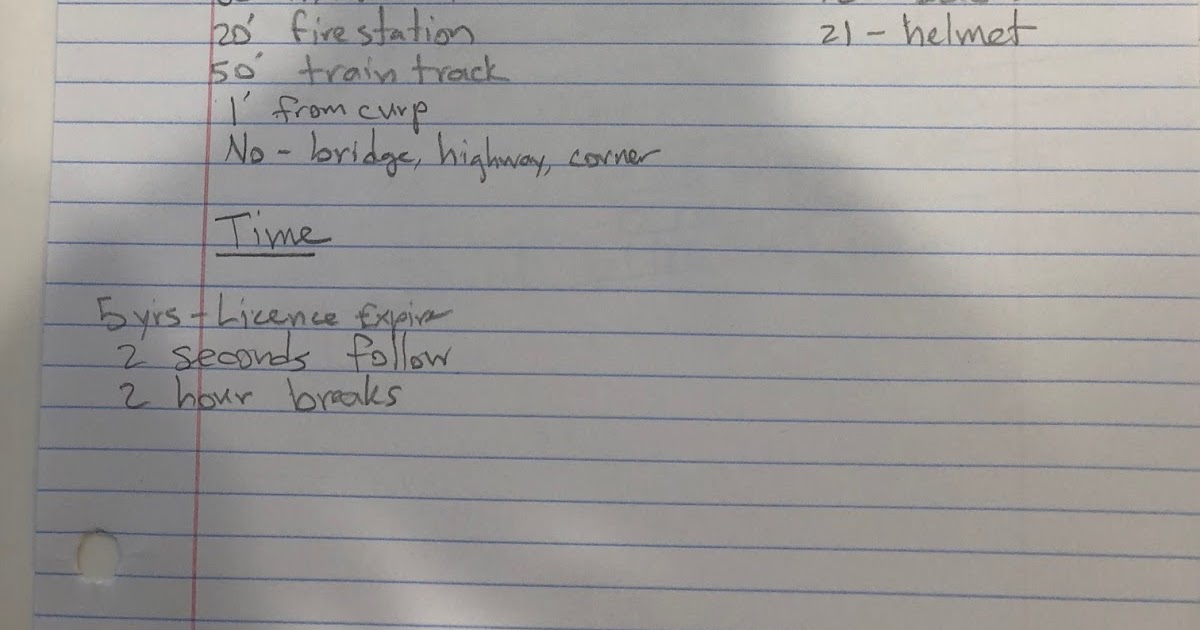 20' fire station
21 - helmet
50' train track
1' from curp
No - bridge, highway, corner
Time
5 yrs - Licence Expire
2 seconds follow
2 hour breaks